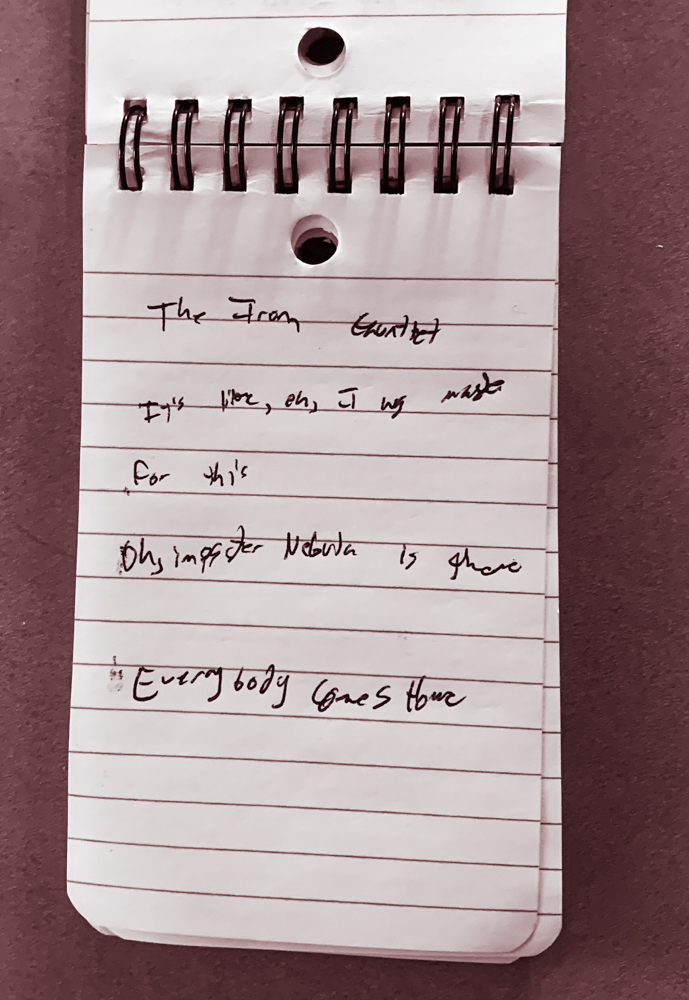 The Iron Gauntlet
It's like, oh, I was made
For this
Oh, imposter Nebula is there
Everybody Comes Home